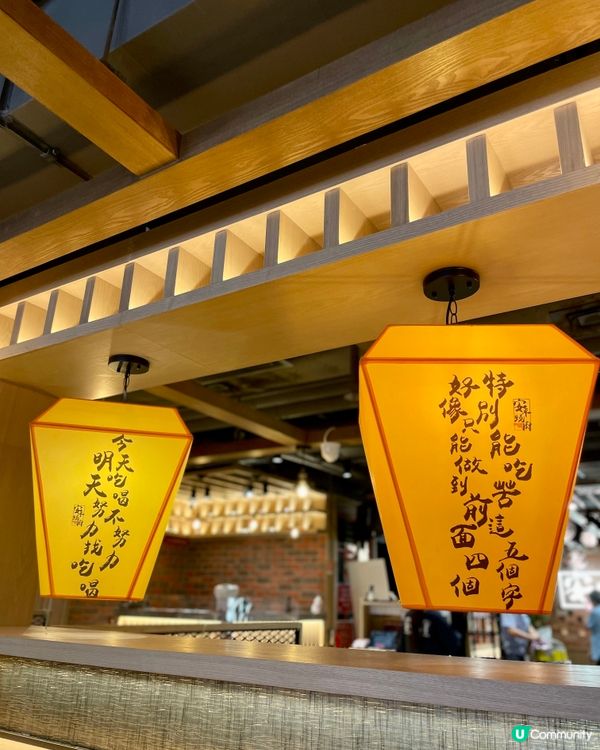 今天吃喝不努力
明天努力找吃喝
特別能吃苦這五個字
好像只能做到前面四個
U Community